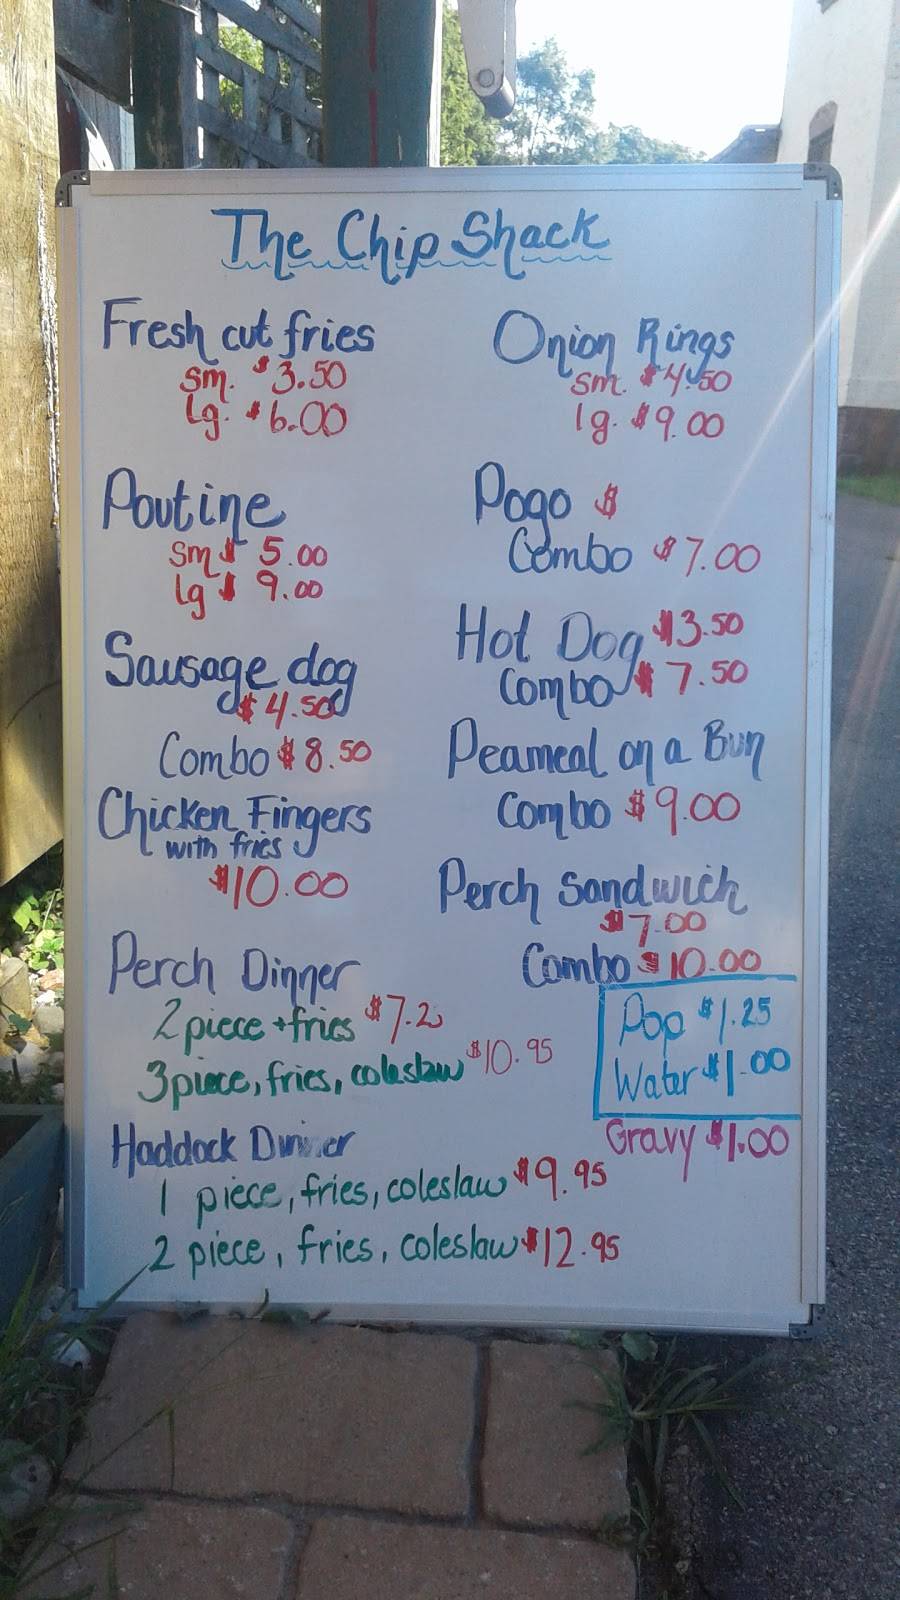 The Chip Shack
Fresh cut fries
sm. $3.50
lg. $6.00
Poutine
sm $ 5.00
lg $ 9.00
Sausage dog
$4.50
Combo $8.50
Chicken Fingers
with fries
$10.00
Perch Dinner
2 piece + fries $7.2
3 piece, fries, coleslaw $10.95
Haddock Dinner
1 piece, fries, coleslaw $9.95
2 piece, fries, coleslaw $12.95
Onion Rings
sm. $4.50
lg. $9.00
Pogo $
Combo $7.00
Hot Dog $3.50
Combo $7.50
Peameal on a Bun
Combo $9.00
Perch Sandwich
$7.00
Combo $10.00
Pop $1.25
Water $1.00
Gravy $1.00